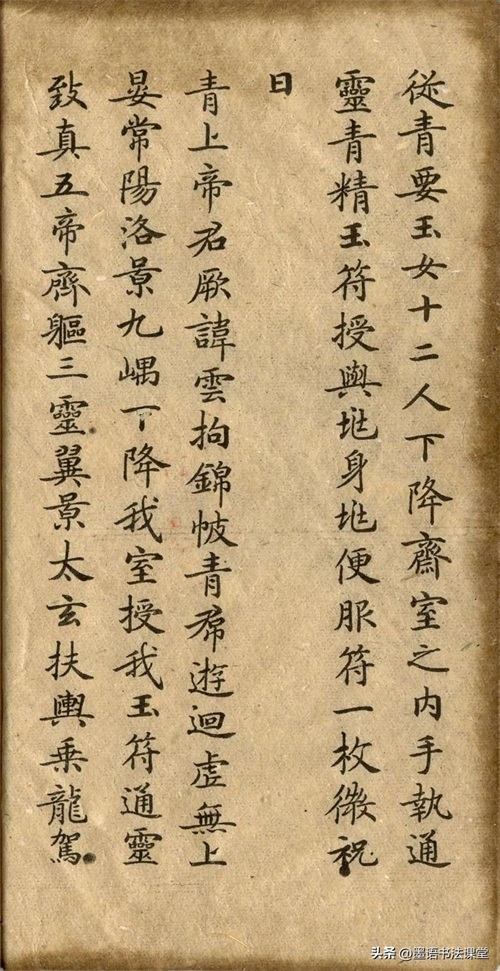 從青要玉女十二人下降齋室之內手執通
靈青精玉符授與地身地便服符一枚微祝
曰
青上帝君厥諱雲拘錦帔青帬遊迴虛無上
晏常陽洛景九嵎下降我室授我玉符通靈
致真五帝齊軀三靈翼景太玄扶輿乘龍駕
头条@墨语书法课堂